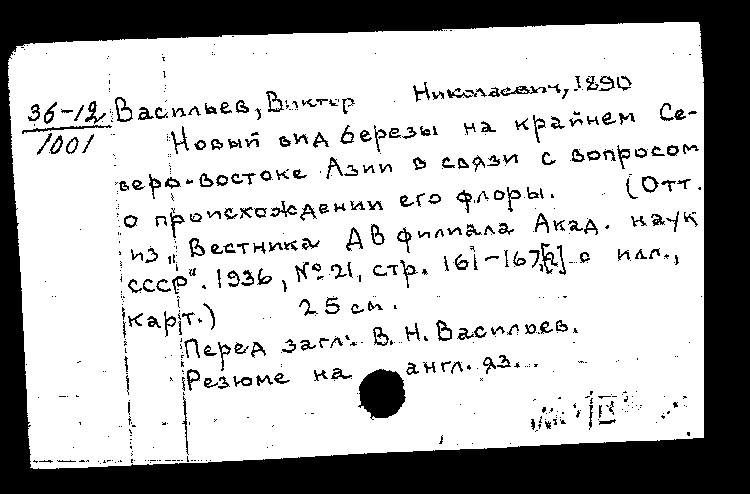 36-12 Васильев, Виктор Николаевич, 1890
1001 Новый вид березы на крайнем Се-
веро-востоке Азии в связи с вопросом
о происхождении его флоры. (Отт.
из „Вестника ДВ филиала Акад. наук
СССР“. 1936, №21, стр. 161-167,[2] с илл.,
карт.) 25 см.
Перед загл.: В. Н. Васильев.
Резюме на англ. яз.